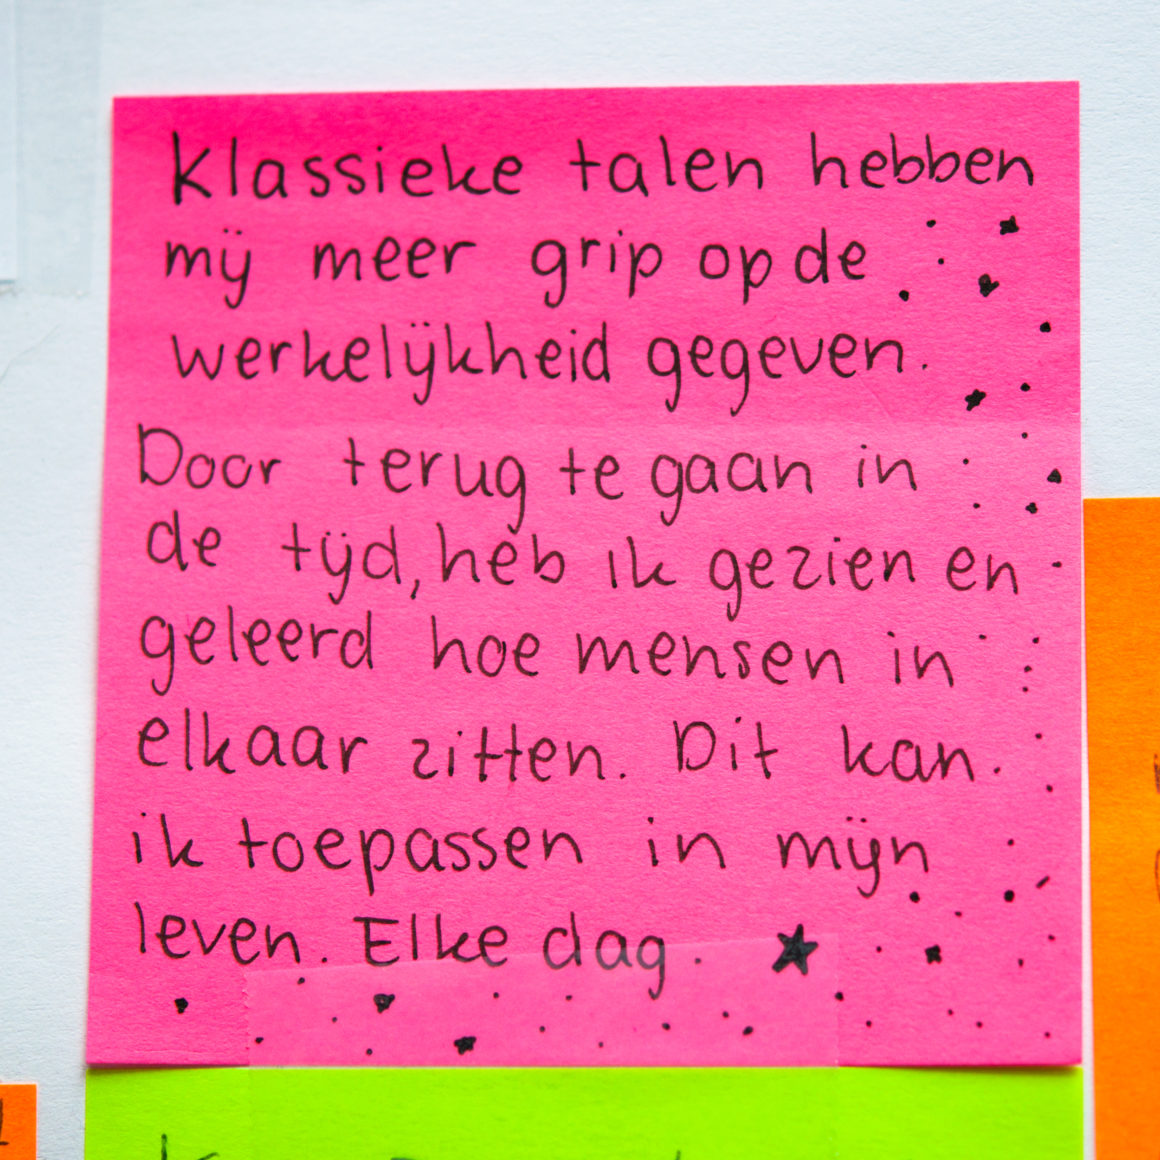 Klassieke talen hebben
mij meer grip op de
werkelijkheid gegeven.
Door terug te gaan in
de tijd, heb ik gezien en
geleerd hoe mensen in
elkaar zitten. Dit kan
ik toepassen in mijn
leven. Elke dag.